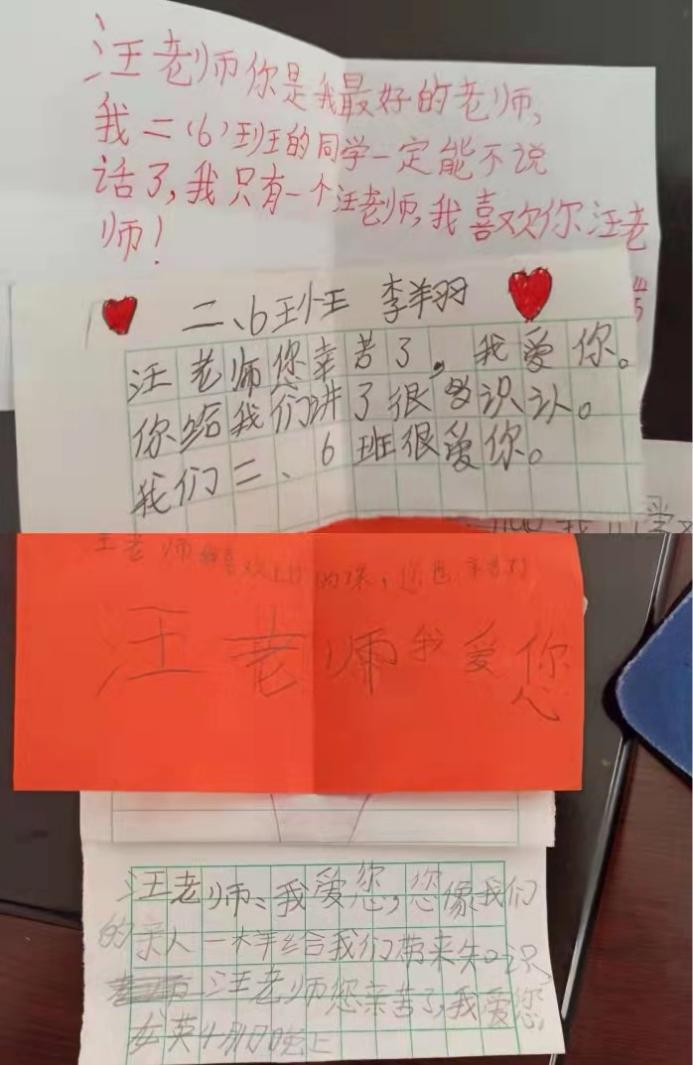 汪老师你是我最好的老师,
我二(6)班的同学一定能不说
话了,我只有一个汪老师,我喜欢你汪老
师!
二、6班 李羊羽
汪老师您幸苦了,我爱你。
你给我们讲了很多识认。
我们二、6班很爱你。
老师我喜欢上 的课,您也辛苦了
汪老师我爱您
汪老师:我爱您,您像我们
的亲人一样给我们带来知识,
汪老师您亲苦了,我爱您,
英 晚上